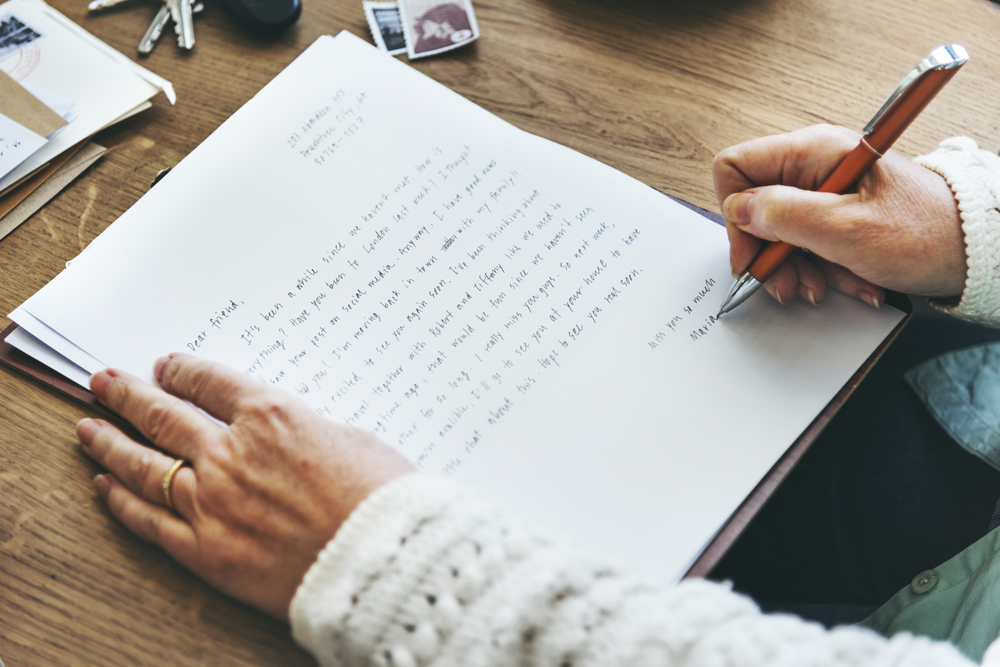 Dear friend,
It's been a while since we haven't met. How is
everything? Have you been to London last week? I thought
saw your post on social media. Anyway, I have good news
you! I'm moving back in town with my family!!
excited to see you again soon. I've been thinking about
travel together with Robert and Tiffany like we used to
time ago, that would be fun since we haven't seen
other for so long. I really miss you guys. So next week,
you're avalible. I'll go to see you at your house to have
little chat about this. Hope to see you real soon.
Miss you so much
Maria